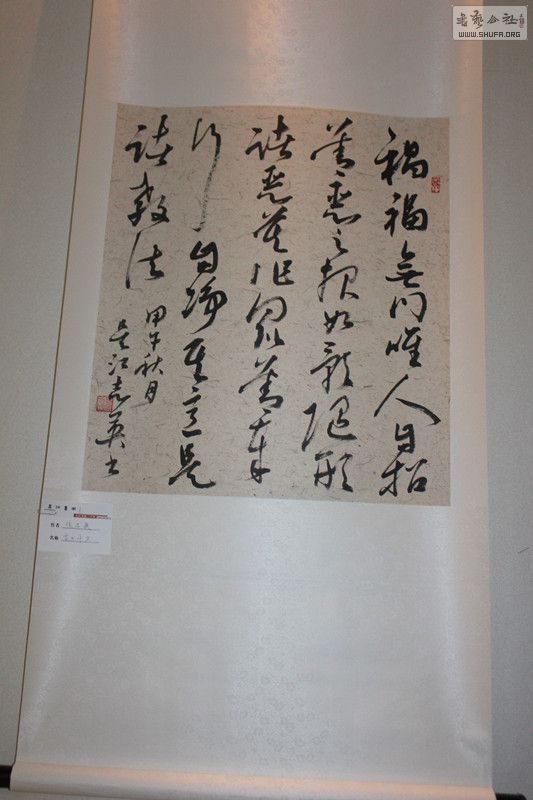 書藝公社
WWW.SHUFA.ORG
禍福無門唯人自招
善惡之報如影隨形
諸惡莫作眾善奉
行自淨其意是
諸教法
甲午秋月
吴江英书
作者
名称